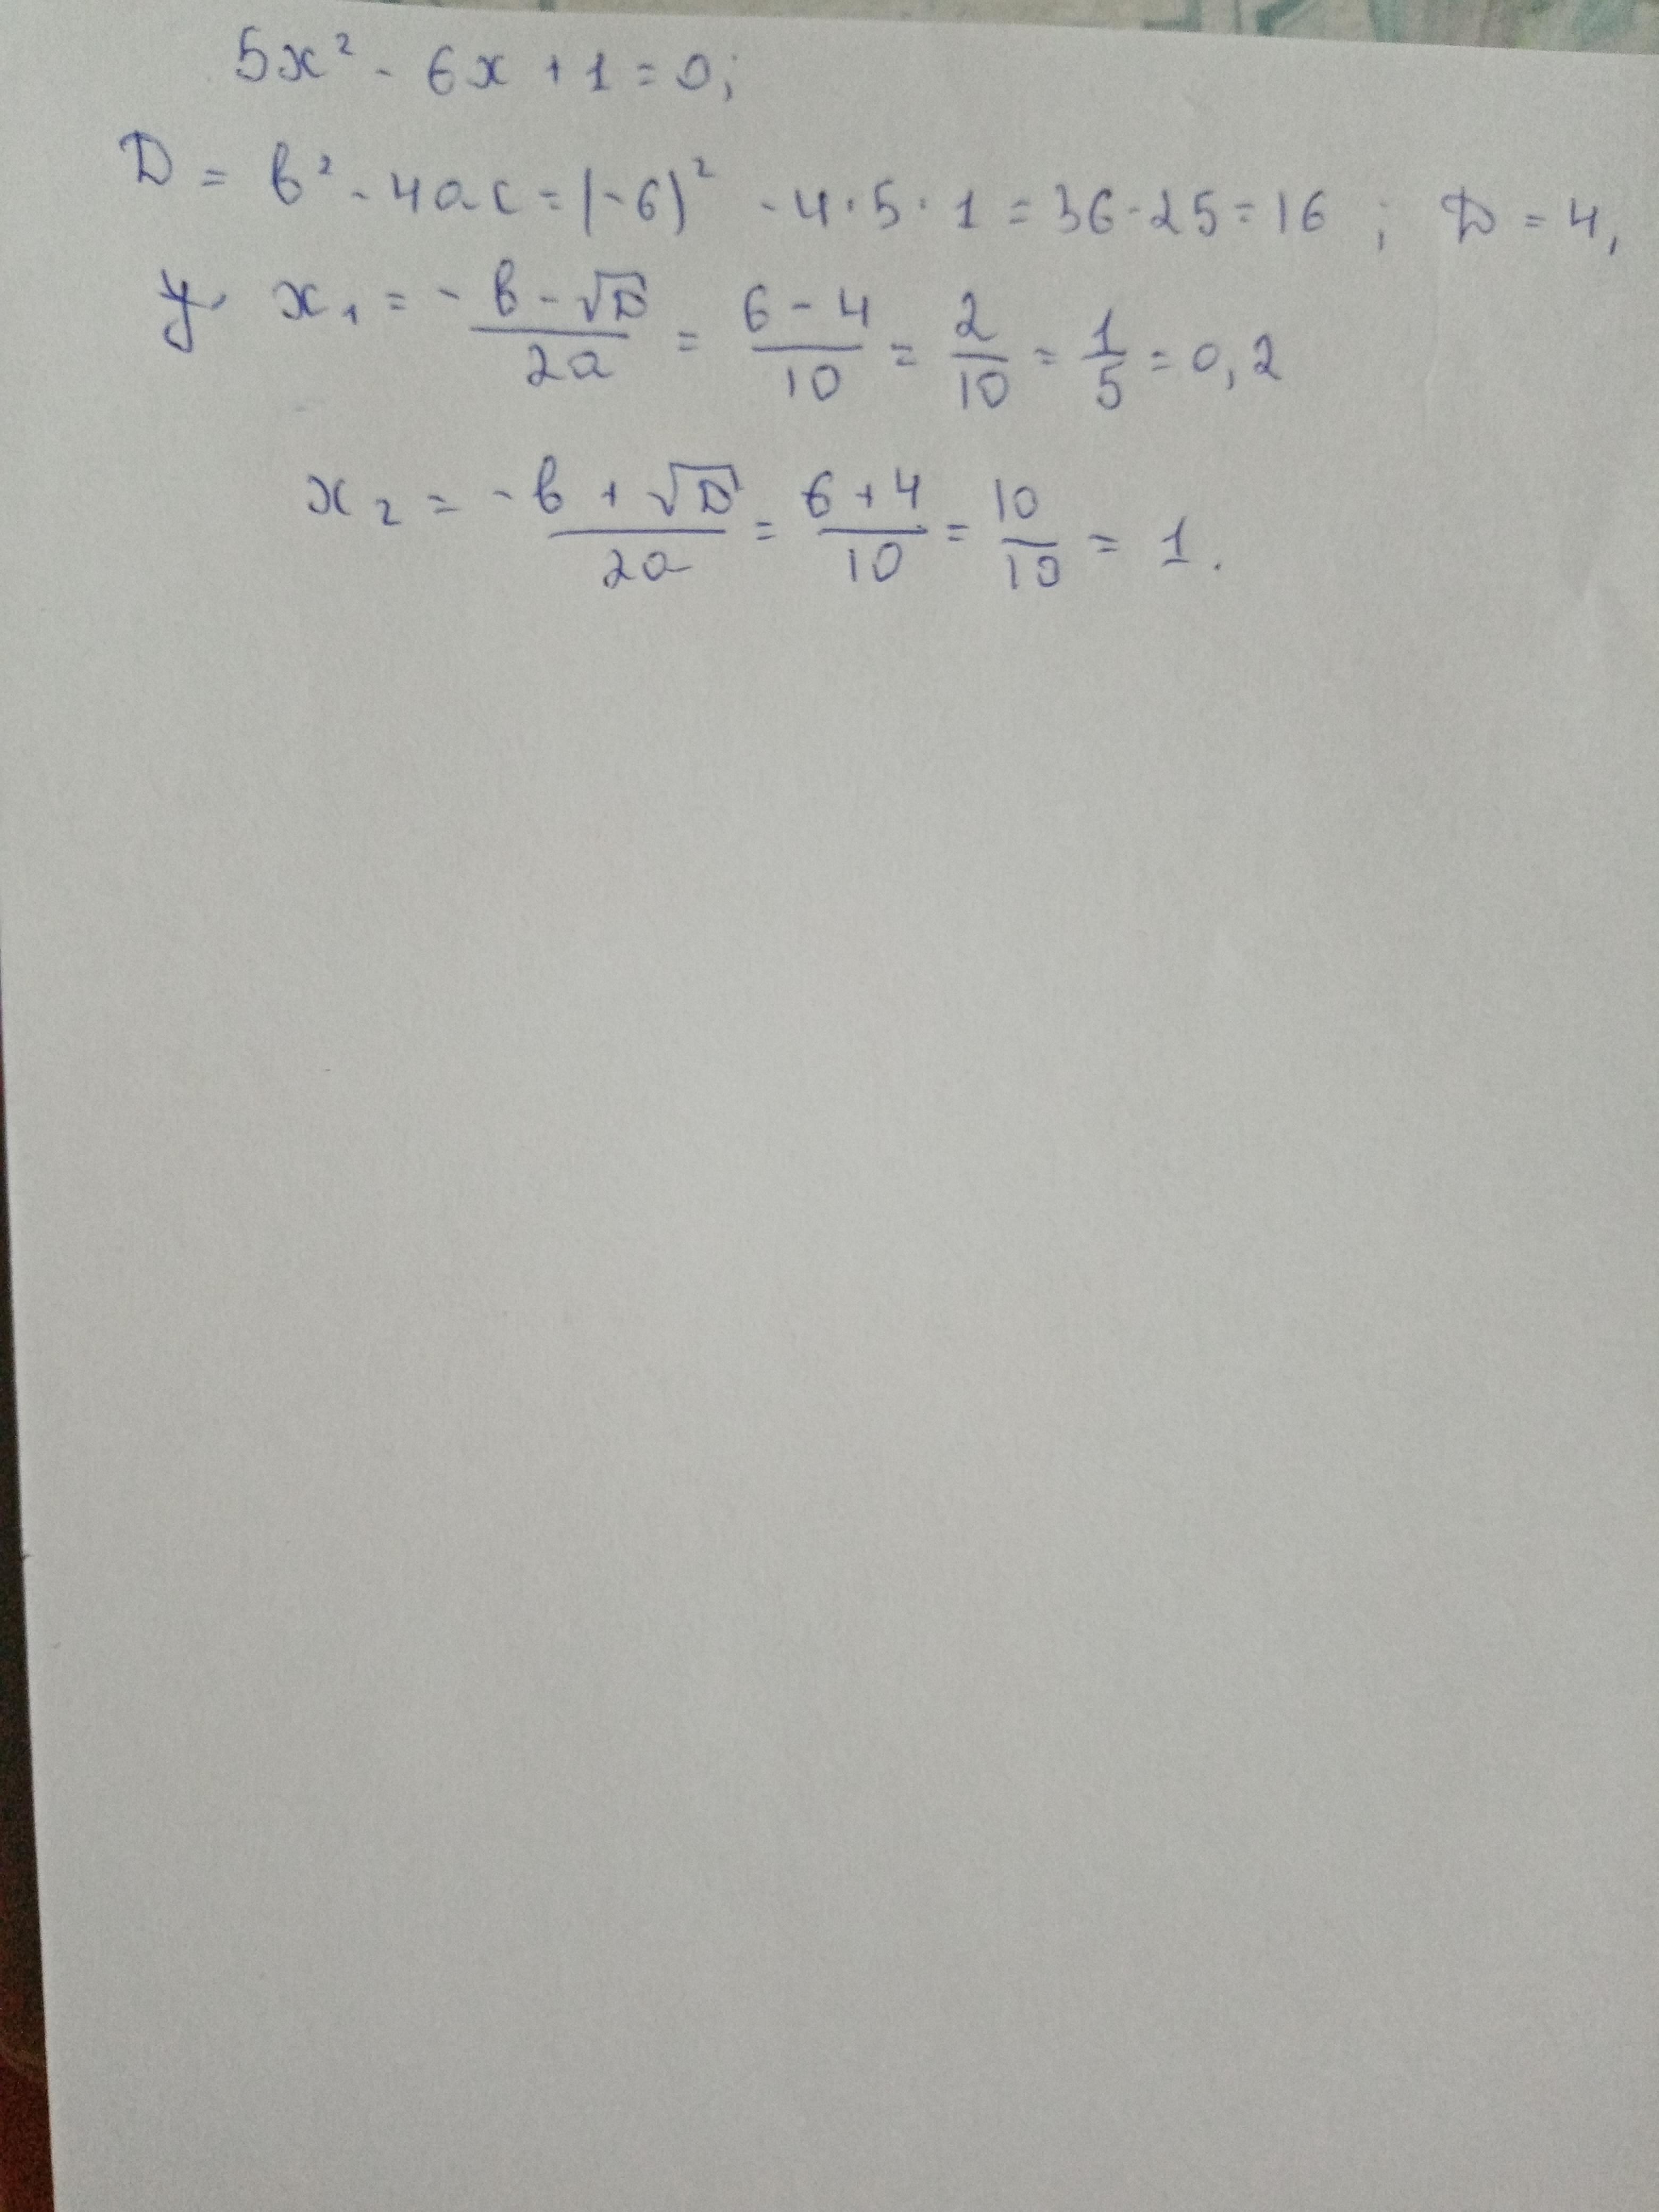 5x² - 6x + 1 = 0;
D = b² - 4ac = (-6)² - 4·5·1 = 36 - 25 = 16 ; D = 4,
x₁ = -b - √D / 2a = 6 - 4 / 10 = 2/10 = 1/5 = 0,2
x₂ = -b + √D / 2a = 6 + 4 / 10 = 10/10 = 1.